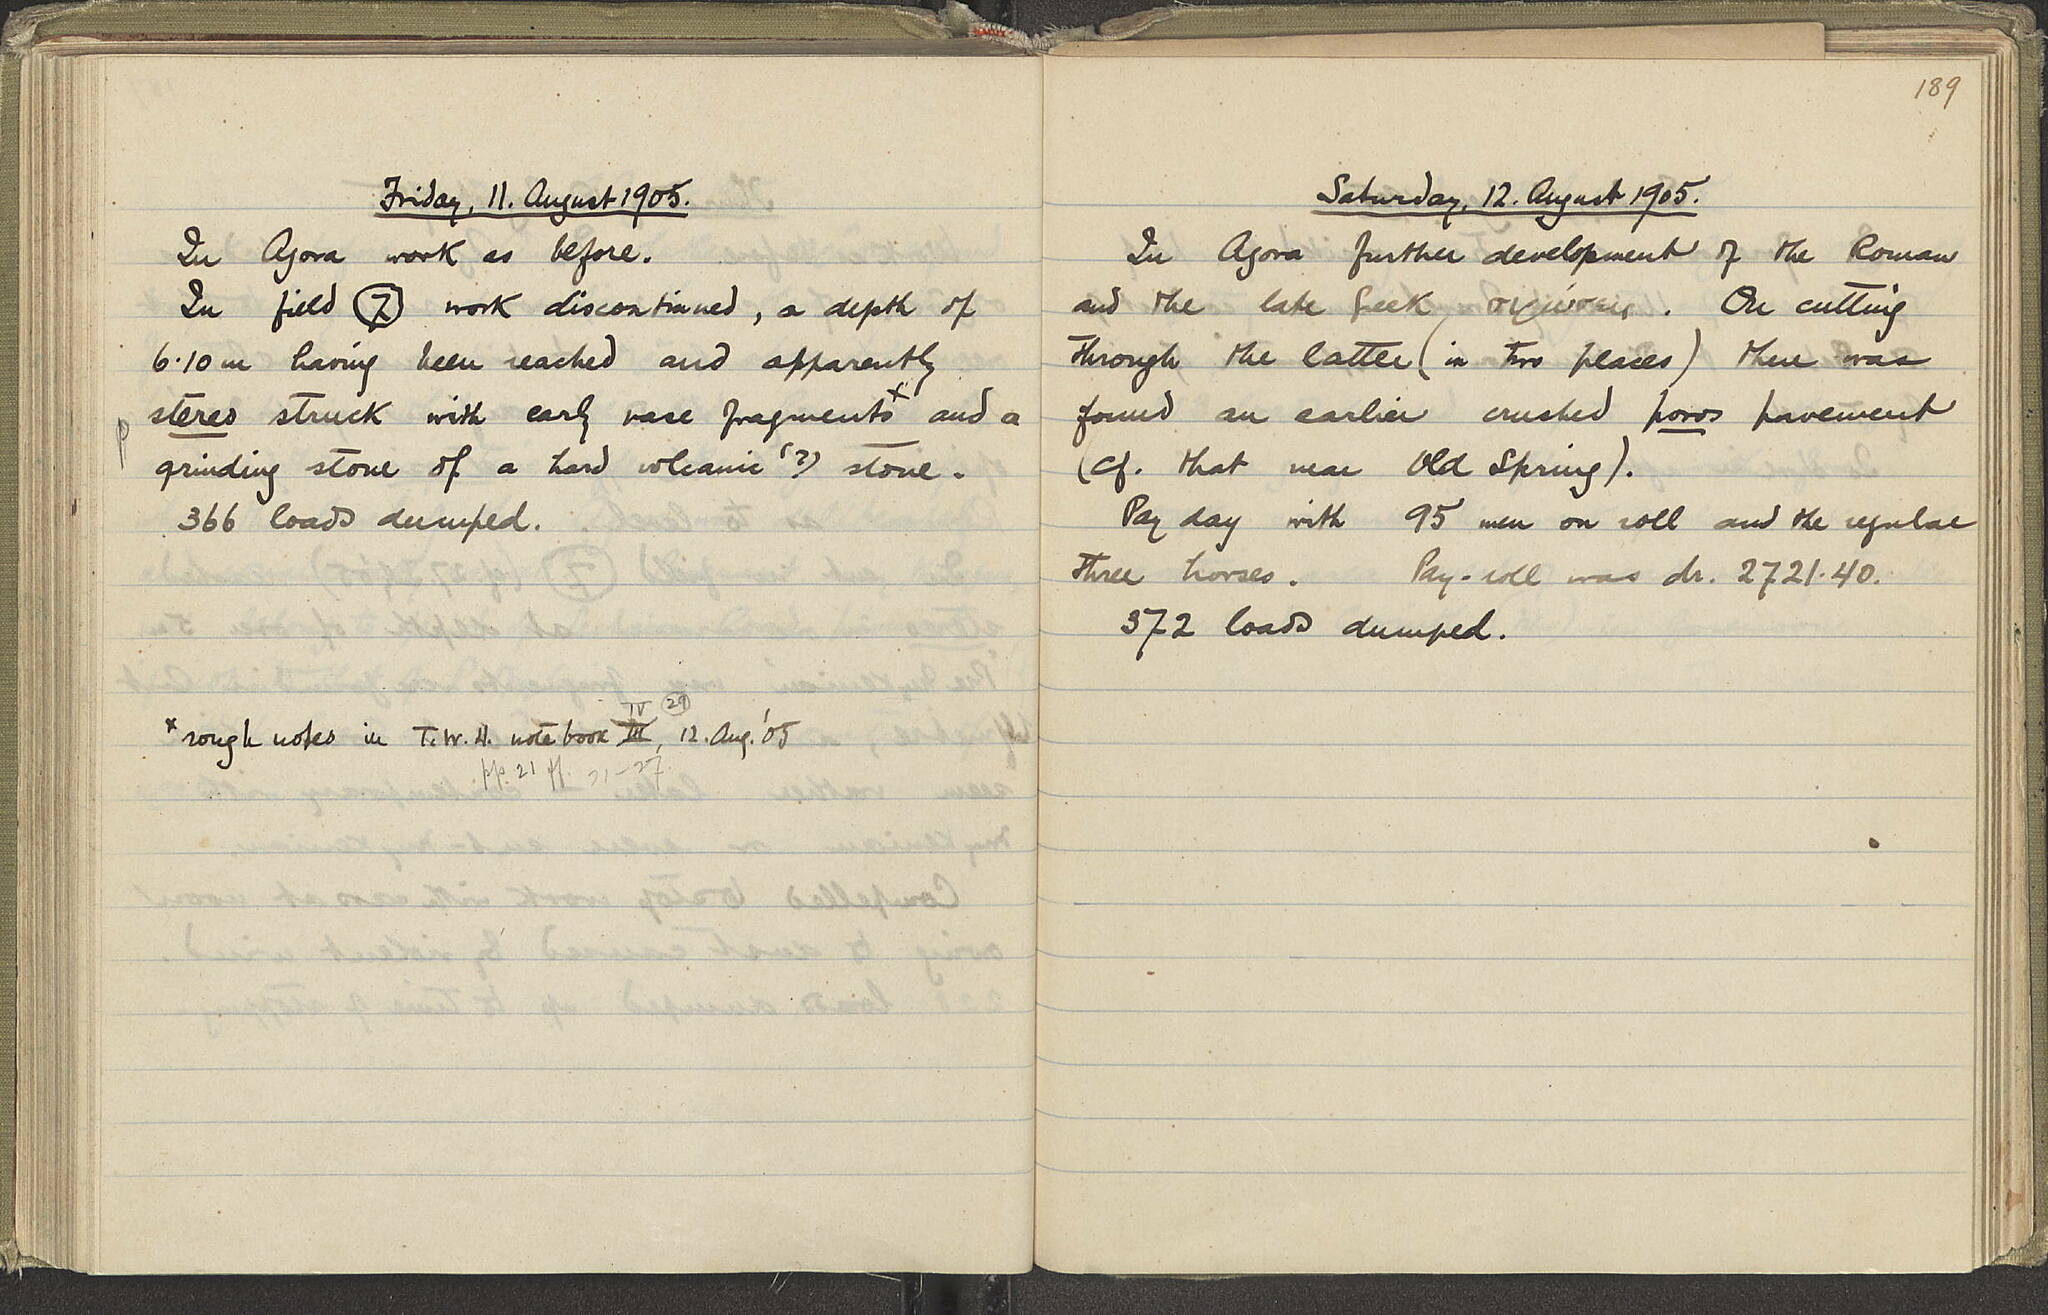 Friday, 11. August 1905.
In Agora work as before.
In field 7 work discontinued, a depth of
6.10 m having been reached and apparently
stereo struck with early vase fragments x and a
p
grinding stone of a hard volcanic (?) stone.
366 loads dumped.
IV 29
x rough notes in T.W.H. note book III, 12. Aug. '05
pp. 21 ff. 21-27
189
Saturday, 12. August 1905.
In Agora further development of the Roman
and the late Greek. On cutting
through the latter (in two places) there was
found an earlier crushed poros pavement
(cf. that near Old Spring).
Pay day with 95 men on roll and the regular
three horses. Pay-roll was dr. 2721.40.
372 loads dumped.